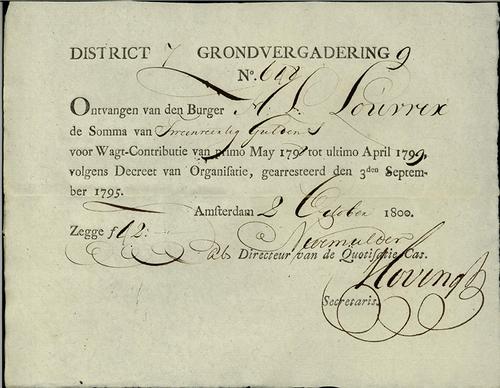 DISTRICT 7 GRONDVERGADERING 9
No. 612
Ontvangen van den Burger A. J. Louvrex
de Somma van Guldens
voor Wagt-Contributie van primo May 179 tot ultimo April 1799,
volgens Decreet van Organisatie, gearresteerd den 3den Septem-
ber 1795.
Amsterdam 2 October 1800.
Zegge ƒ 12:
Directeur van de Quotisatie Cas.
Hoving
Secretaris.